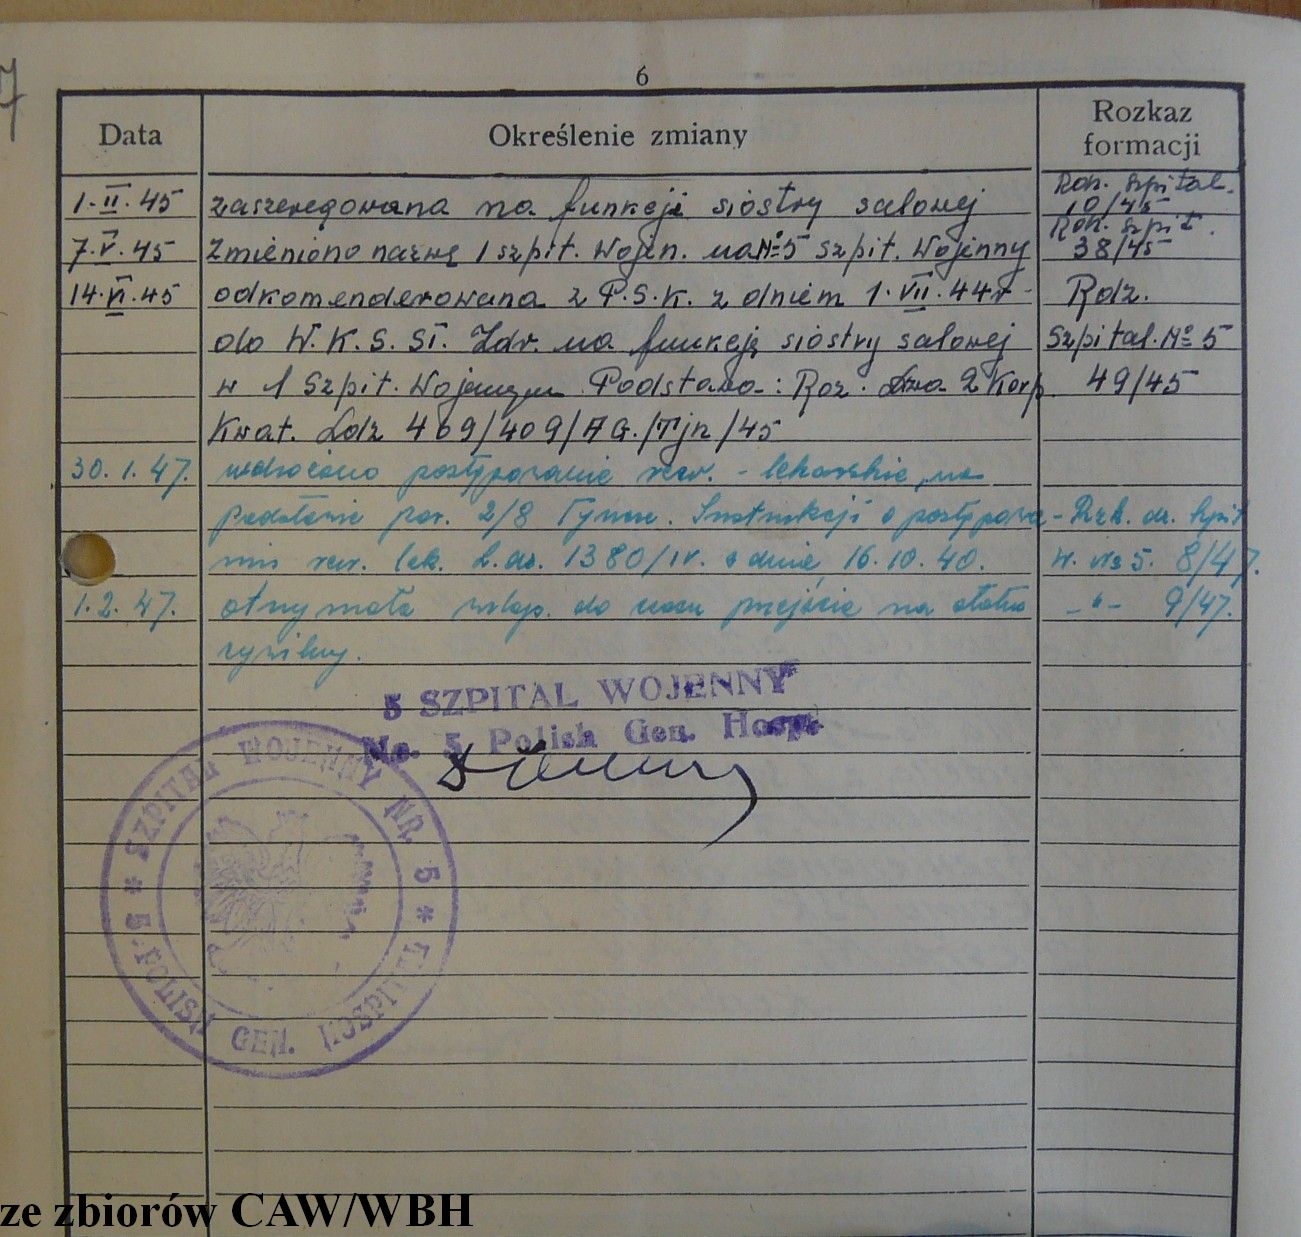 7
6
Data Określenie zmiany Rozkaz formacji
1.II.45 zaszeregowana na funkcji siostry salowej Roz. Szpital. 10/45
7.V.45 Zmieniono nazwę 1 szpit. Wojen. na № 5 szpit. Wojenny Roz. szpit. 38/45
14.VI.45 odkomenderowana z P.S.K. z dniem 1.VII.44r Rdz.
do W.K.S. Sł. Zdr. na funkcję siostry salowej Szpital. № 5
w 1 Szpit. Wojennym Podstawa: Roz. 2 Korp. 49/45
Kwat. Ldz 469/409/AG./Tjn/45
30.1.47. wdrożono postępowanie rew. - lekarskie, na
podstawie par. 2/8 Tymcz. Instrukcji o postępowa- Rzk. dz. Szpit
niu rew. lek. L.dz. 1380/IV. z dnia 16.10.40. W. № 5. 8/47.
1.2.47. otrzymała urlop. do czasu przejścia na stałe -"- 9/47.
cywilny.
5 SZPITAL WOJENNY
No. 5 Polish Gen. Hosp.
* SZPITAL WOJENNY NR. 5 *
5-POLISH GEN. HOSPITAL
ze zbiorów CAW/WBH